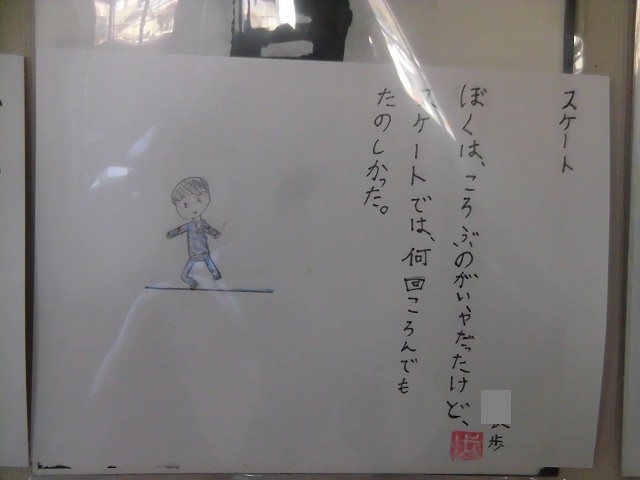 スケート
ぼくは、ころぶのがいやだったけど、
スケートでは、何回ころんでも
たのしかった。
歩
歩